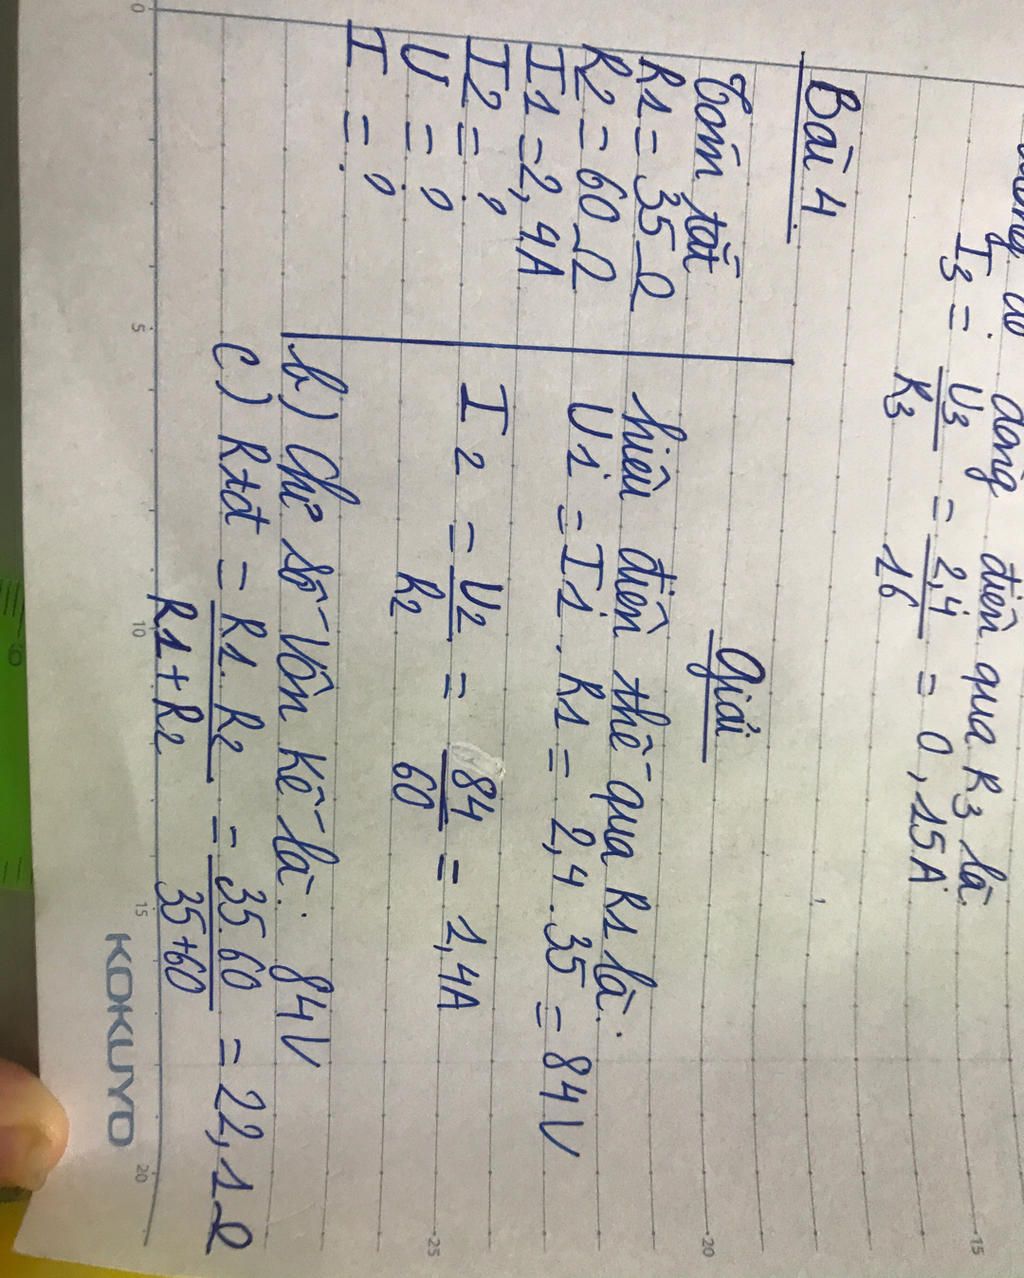 dòng điện qua R3 là
I3 = U3/R3 = 2,4/16 = 0,15A
Bài 4
Tóm tắt
R1 = 35 Ω
R2 = 60 Ω
I1 = 2,4A
I2 = ?
U = ?
I = ?
Giải
hiệu điện thế qua R1 là:
U1 = I1 . R1 = 2,4 . 35 = 84V
I2 = U2/R2 = 84/60 = 1,4A
b) Chỉ số Vôn Kế là: 84V
c) Rtđ = R1.R2/R1+R2 = 35.60/35+60 = 22,1Ω
0 5 10 15 20
15 20 25
KOKUYO